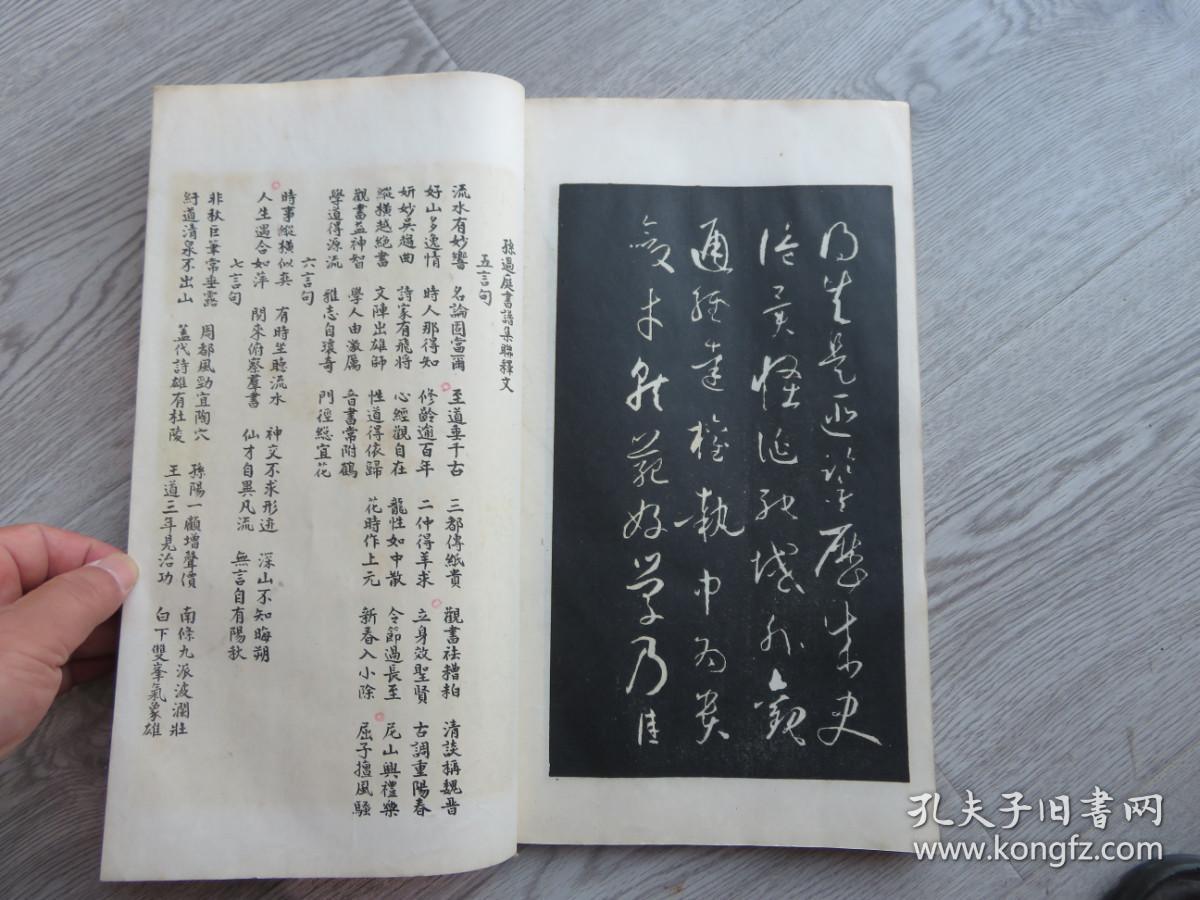 通經達權執中為貴
好學乃佳
孫過庭書譜集聯釋文
五言句
流水有妙響 名論固當爾 至道垂千古 三都傳紙貴 觀書祛糟粕 清談稱魏晉
好山多逸情 時人那得知 修齡逾百年 二仲得羊求 立身效聖賢 古調重陽春
妍妙吳趨曲 詩家有飛將 心經觀自在 龍性如中散 令節過長至 尼山興禮樂
縱橫越絕書 文陣出雄師 性道得依歸 花時作上元 新春入小除 屈子擅風騷
觀書益神智 學人由激厲 音書常附鶴
學道得源流 雅志自瓌奇 門徑總宜花
六言句
時事縱橫似奕 有時坐聽流水 神交不求形迹 深山不知晦朔
人生遇合如萍 閑來俯察羣書 仙才自異凡流 無言自有陽秋
七言句
非秋巨筆常垂露 周都風勁宜陶穴 孫陽一顧增聲價 南條九派波瀾壯
紆道清泉不出山 蓋代詩雄有杜陵 王道三年見治功 白下雙峯氣象雄
孔夫子旧书网
www.kongfz.com